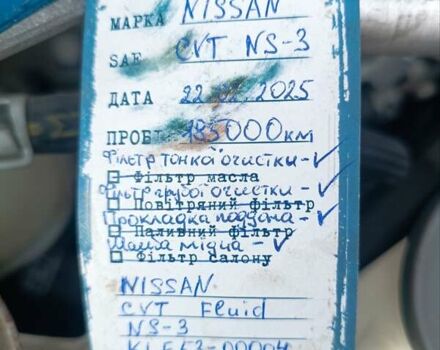 МАРКА NISSAN
SAE CVT NS-3
ДАТА 22. .2025
ПРОБІГ 195000 км
Фільтр тонкої очистки - ✓
Фільтр масла
Фільтр грубої очистки - ✓
Повітряний фільтр
Прокладка поддона - ✓
Паливний фільтр
Шайба мідна - ✓
Фільтр салону
NISSAN
CVT Fluid
NS-3
KLE53-00004